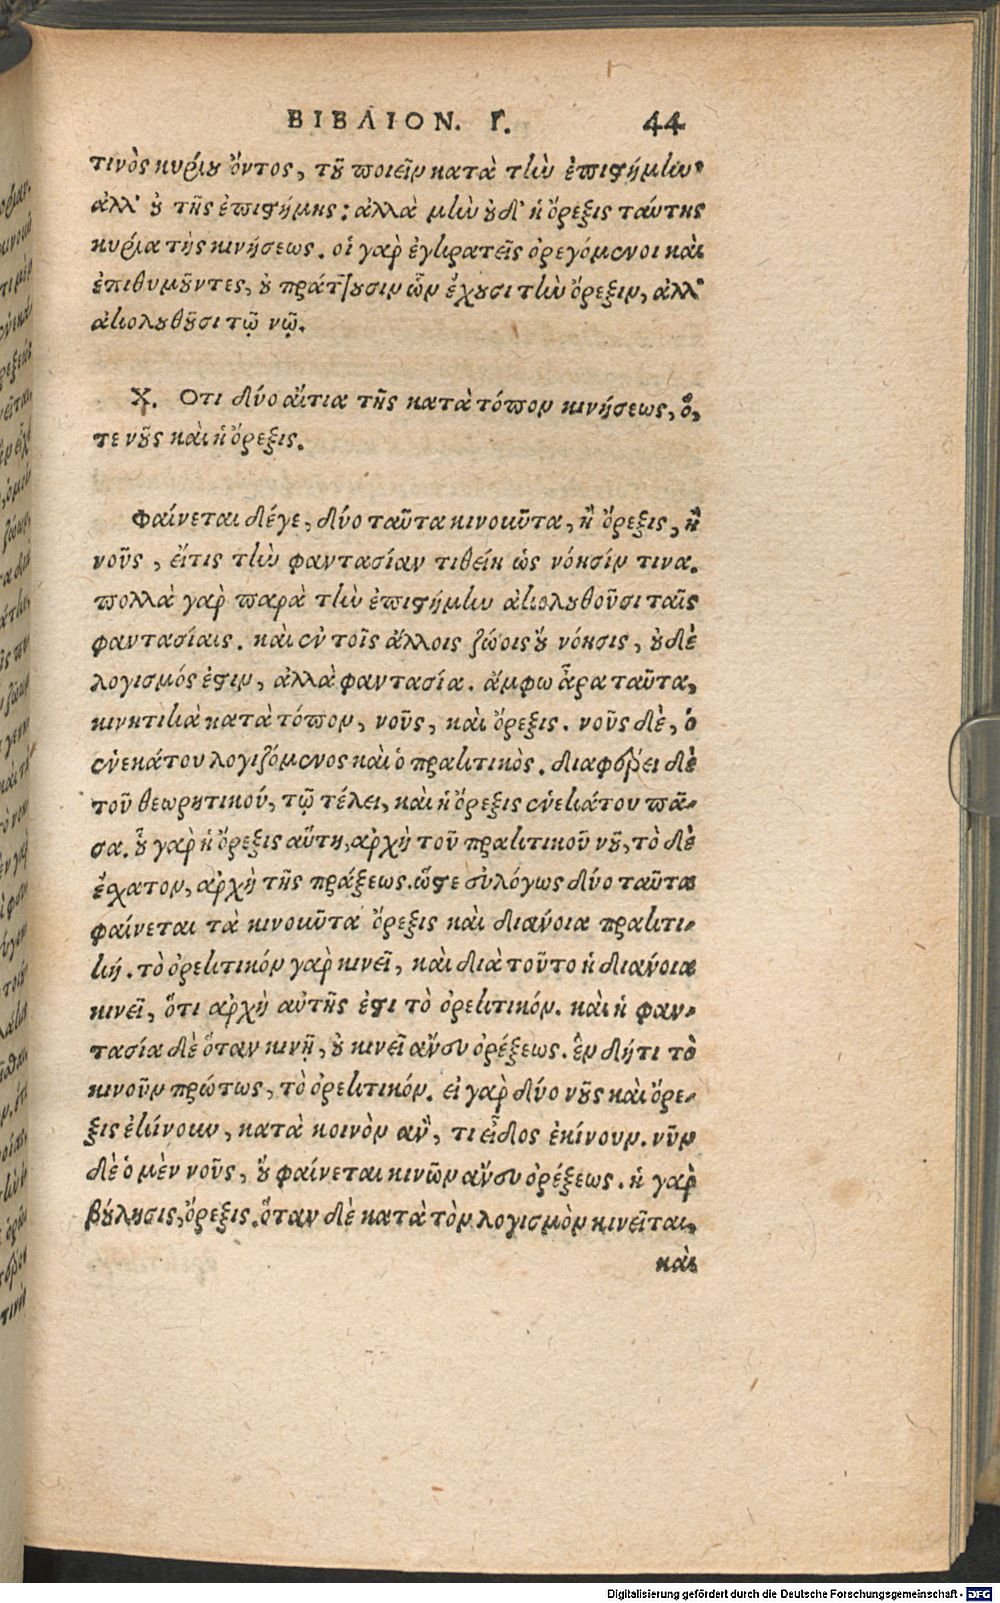 ΒΙΒΛΙΟΝ. Γ. 44
τινὸς κυρίου ὄντος, τοῦ ποιεῖν κατὰ τὴν ἐπιστήμην·
ἀλλ' οὐ τῆς ἐπιστήμης: ἀλλὰ μὴν οὐδ' ἡ ὄρεξις ταύτης
κυρία τῆς κινήσεως. οἱ γὰρ ἐγκρατεῖς ὀρεγόμενοι καὶ
ἐπιθυμοῦντες, οὐ πράττουσιν ὧν ἔχουσι τὴν ὄρεξιν, ἀλλ'
ἀκολουθοῦσι τῷ νῷ.
Χ. Οτι δύο αἴτια τῆς κατὰ τόπον κινήσεως, ὅ,
τε νοῦς καὶ ἡ ὄρεξις.
Φαίνεται δέγε, δύο ταῦτα κινοῦντα, ἢ ὄρεξις, ἢ
νοῦς, εἴτις τὴν φαντασίαν τιθείη ὡς νόησίν τινα.
πολλὰ γὰρ παρὰ τὴν ἐπιστήμην ἀκολουθοῦσι ταῖς
φαντασίαις. καὶ ἐν τοῖς ἄλλοις ζώοις οὐ νόησις, οὐδὲ
λογισμός ἐστιν, ἀλλὰ φαντασία. ἄμφω ἆρα ταῦτα,
κινητικὰ κατὰ τόπον, νοῦς, καὶ ὄρεξις. νοῦς δὲ, ὁ
ἑνεκάτου λογιζόμενος καὶ ὁ πρακτικὸς. διαφέρει δὲ
τοῦ θεωρητικού, τῷ τέλει, καὶ ἡ ὄρεξις ἑνεκάτου πᾶ-
σα. οὗ γὰρ ἡ ὄρεξις αὕτη, ἀρχὴ τοῦ πρακτικοῦ νοῦ, τὸ δὲ
ἔσχατον, ἀρχὴ τῆς πράξεως. ὥστε εὐλόγως δύο ταῦτα
φαίνεται τὰ κινοῦντα ὄρεξις καὶ διάνοια πρακτι-
κή. τὸ ὀρεκτικόν γὰρ κινεῖ, καὶ διὰ τοῦτο ἡ διάνοια
κινεῖ, ὅτι ἀρχὴ αὐτῆς ἐστι τὸ ὀρεκτικόν. καὶ ἡ φαν-
τασία δὲ ὅταν κινῇ, οὐ κινεῖ ἄνευ ὀρέξεως. ἓν δήτι τὸ
κινοῦν πρώτως, τὸ ὀρεκτικόν. εἰ γὰρ δύο νοῦς καὶ ὄρε-
ξις ἐκίνουν, κατὰ κοινὸν ἂν, τι εἶδος ἐκίνουν. νῦν
δὲ ὁ μὲν νοῦς, οὐ φαίνεται κινῶν ἄνευ ὀρέξεως. ἡ γὰρ
βούλησις, ὄρεξις. ὅταν δὲ κατὰ τὸν λογισμὸν κινεῖται,
καὶ
Digitalisierung gefördert durch die Deutsche Forschungsgemeinschaft - DFG